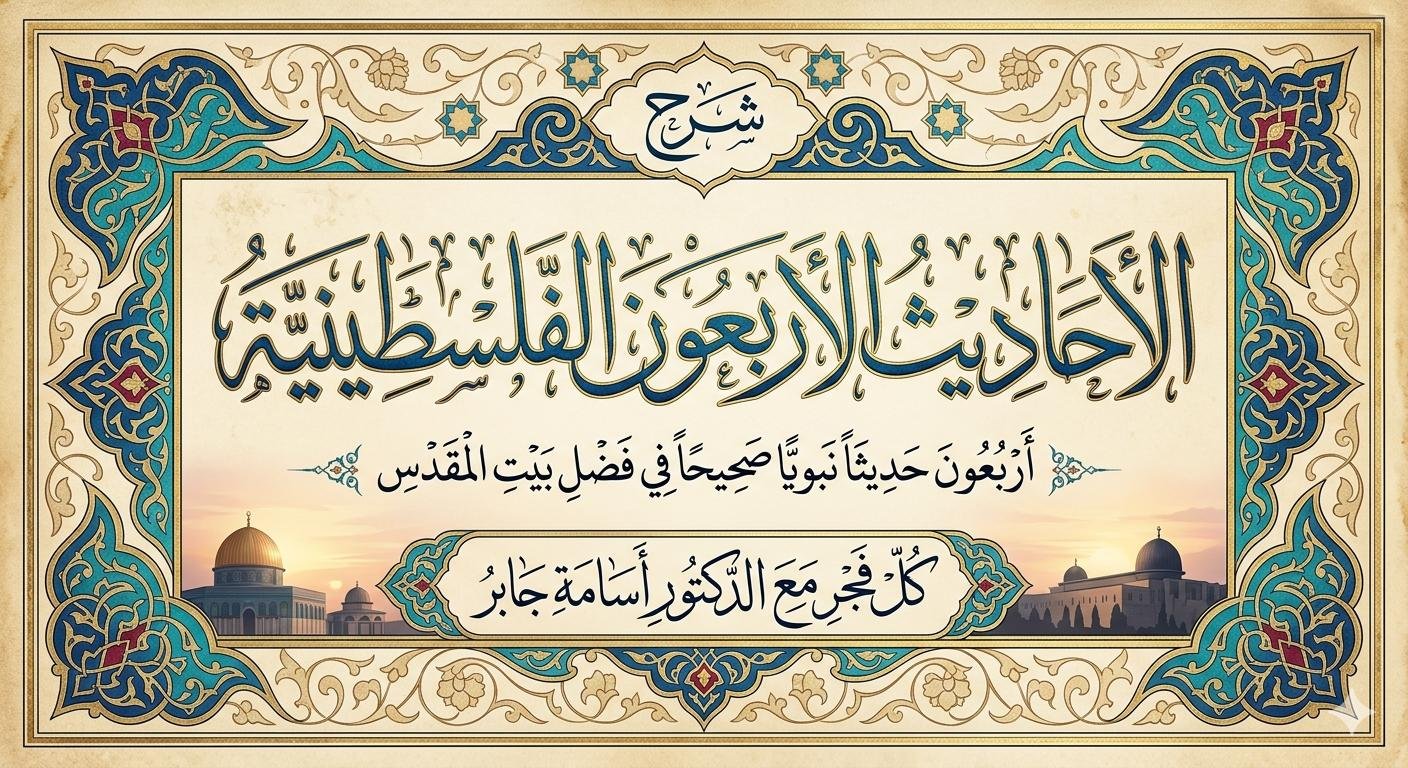 شَرَح
الأَحَادِيثُ الأَرْبَعُونَ الفَّلَسْطِينِيَّةُ
أَرْبُعُونَ حَدِيثَاً نَبويًّا صَحِيحَاً فِي فَضْلِ بَيْتِ الْمَقَدْسِ
كُلّ فَجْرٍ مَعَ الدَّكتُورِ أَسَامَةِ جَابرُ